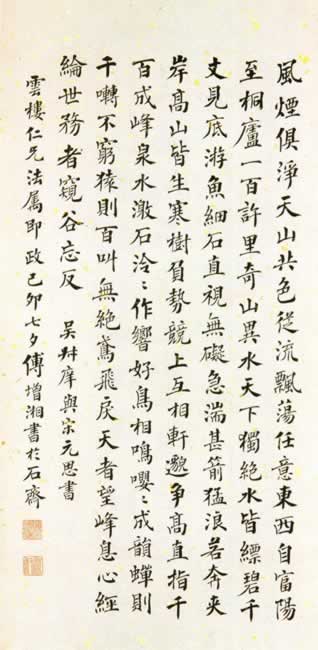 風煙俱淨天山共色從流飄蕩任意東西自富陽
至桐廬一百許里奇山異水天下獨絕水皆縹碧千
丈見底游魚細石直視無礙急湍甚箭猛浪若奔夾
岸高山皆生寒樹負勢競上互相軒邈爭高直指千
百成峰泉水激石泠〻作響好鳥相鳴嚶〻成韻蟬則
千囀不窮猿則百叫無絕鳶飛戾天者望峰息心經
綸世務者窺谷忘反 吳叔庠與宋元思書
雲樓仁兄法屬即政己卯七夕傅增湘書於石齋